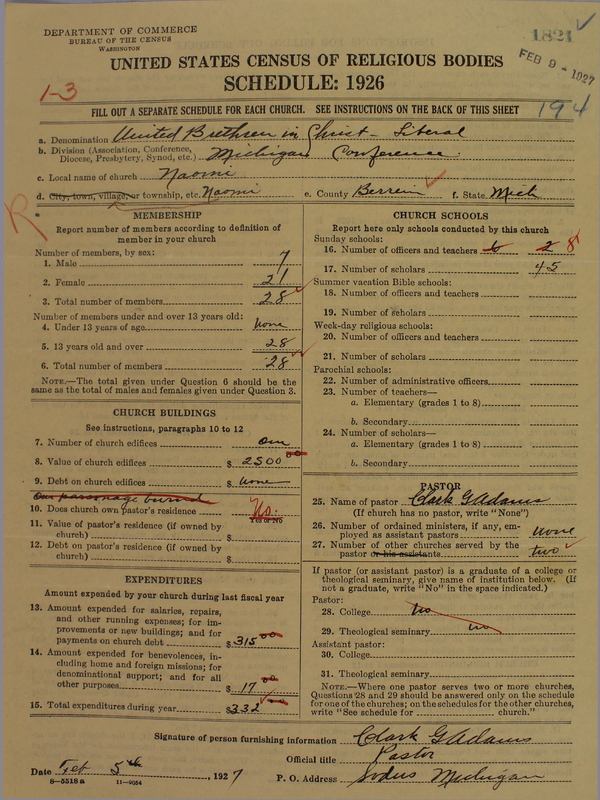 DEPARTMENT OF COMMERCE
BUREAU OF THE CENSUS
WASHINGTON
1821
FEB 9 - 1927
UNITED STATES CENSUS OF RELIGIOUS BODIES
SCHEDULE: 1926
1-3
194
FILL OUT A SEPARATE SCHEDULE FOR EACH CHURCH. SEE INSTRUCTIONS ON THE BACK OF THIS SHEET
a. Denomination United Brethren in Christ - Liberal
b. Division (Association, Conference, Diocese, Presbytery, Synod, etc.) Michigan Conference.
c. Local name of church Naomi
d. City, town, village, or township, etc. Naomi e. County Berrien f. State Mich
R
MEMBERSHIP
Report number of members according to definition of
member in your church
Number of members, by sex:
1. Male 7
2. Female 21
3. Total number of members 28
Number of members under and over 13 years old:
4. Under 13 years of age None
5. 13 years old and over 28
6. Total number of members 28
NOTE.—The total given under Question 6 should be
same as the total of males and females given under Question 3.
CHURCH BUILDINGS
See instructions, paragraphs 10 to 12
7. Number of church edifices One
8. Value of church edifices $ 2500 00
9. Debt on church edifices $ None
Our parsonage burned
10. Does church own pastor's residence No.
Yes or No
11. Value of pastor's residence (if owned by
church) $
12. Debt on pastor's residence (if owned by
church) $
EXPENDITURES
Amount expended by your church during last fiscal year
13. Amount expended for salaries, repairs,
and other running expenses; for im-
provements or new buildings; and for
payments on church debt $ 315 00
14. Amount expended for benevolences, in-
cluding home and foreign missions; for
denominational support; and for all
other purposes $ 17 00
15. Total expenditures during year $ 332
CHURCH SCHOOLS
Report here only schools conducted by this church
Sunday schools:
16. Number of officers and teachers 8
17. Number of scholars 45
Summer vacation Bible schools:
18. Number of officers and teachers
19. Number of scholars
Week-day religious schools:
20. Number of officers and teachers
21. Number of scholars
Parochial schools:
22. Number of administrative officers
23. Number of teachers—
a. Elementary (grades 1 to 8)
b. Secondary
24. Number of scholars—
a. Elementary (grades 1 to 8)
b. Secondary
PASTOR
25. Name of pastor Clark G Adams
(If church has no pastor, write "None")
26. Number of ordained ministers, if any, em-
ployed as assistant pastors None
27. Number of other churches served by the
pastor or his assistants two
If pastor (or assistant pastor) is a graduate of a college or
theological seminary, give name of institution below. (If
not a graduate, write "No" in the space indicated.)
Pastor:
28. College No
29. Theological seminary No
Assistant pastor:
30. College
31. Theological seminary
NOTE.—Where one pastor serves two or more churches,
Questions 28 and 29 should be answered only on the schedule
for one of the churches; on the schedules for the other churches,
write "See schedule for church."
Signature of person furnishing information Clark G Adams
Official title Pastor
Date Feb 5th, 1927 P. O. Address Sodus Michigan
8-5518 a 11-9054